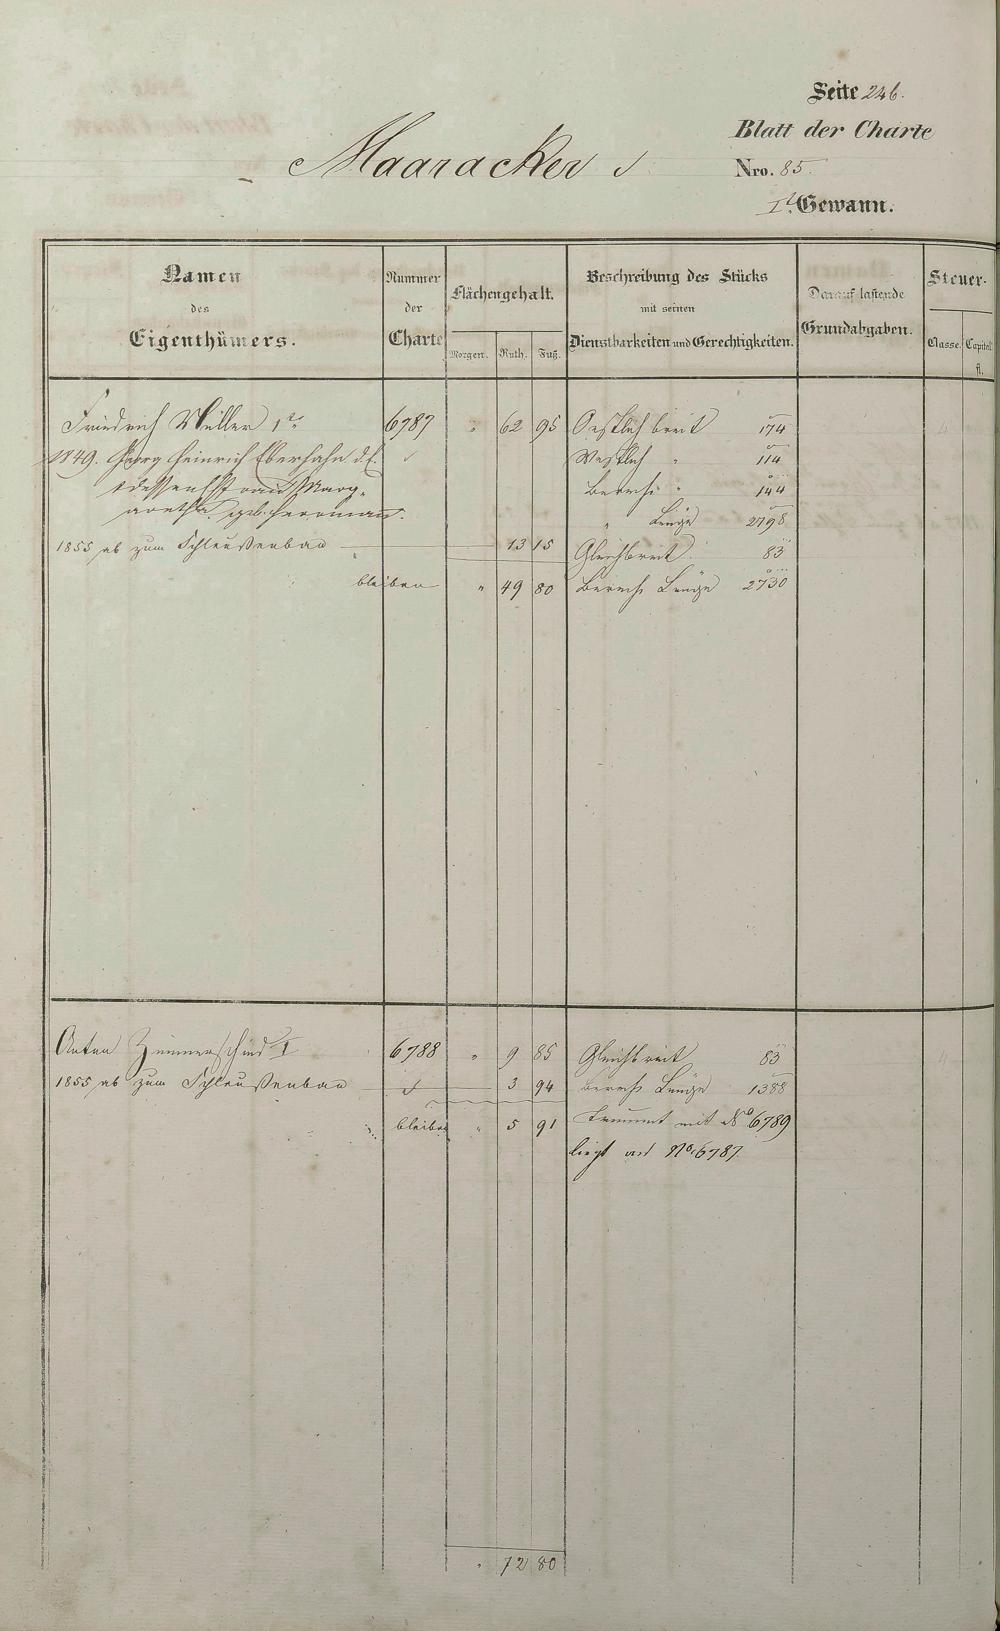 Seite 246.
Blatt der Charte
Maaracker
Nro. 85.
I. Gewann.
Namen des Eigenthümers.
Nummer der Charte
Flächengehalt.
Morgen. Ruth. Fuß.
Beschreibung des Stücks mit seinen Dienstbarkeiten und Gerechtigkeiten.
Darauf lastende Grundabgaben.
Steuer-
Classe. Capital fl.
Friedrich Müller 1r 6787 " 62 95 Oestlich breit 174
1849. Georg Heinrich Eberhahn d. Westlich " 114
Marg- Berech. " 144
aretha geb. Herrmann. " Länge 2798
1855 ab zum Schleußenbau 13 15 Gleichbreit 83
bleiben " 49 80 Berech. Länge 2730
Anton Zimmerschied I 6788 " 9 85 Gleichbreit 83
1855 ab zum Schleußenbau 3 94 Berech. Länge 1388
bleiben " 5 91 mit No 6789
liegt an No. 6787
72 80